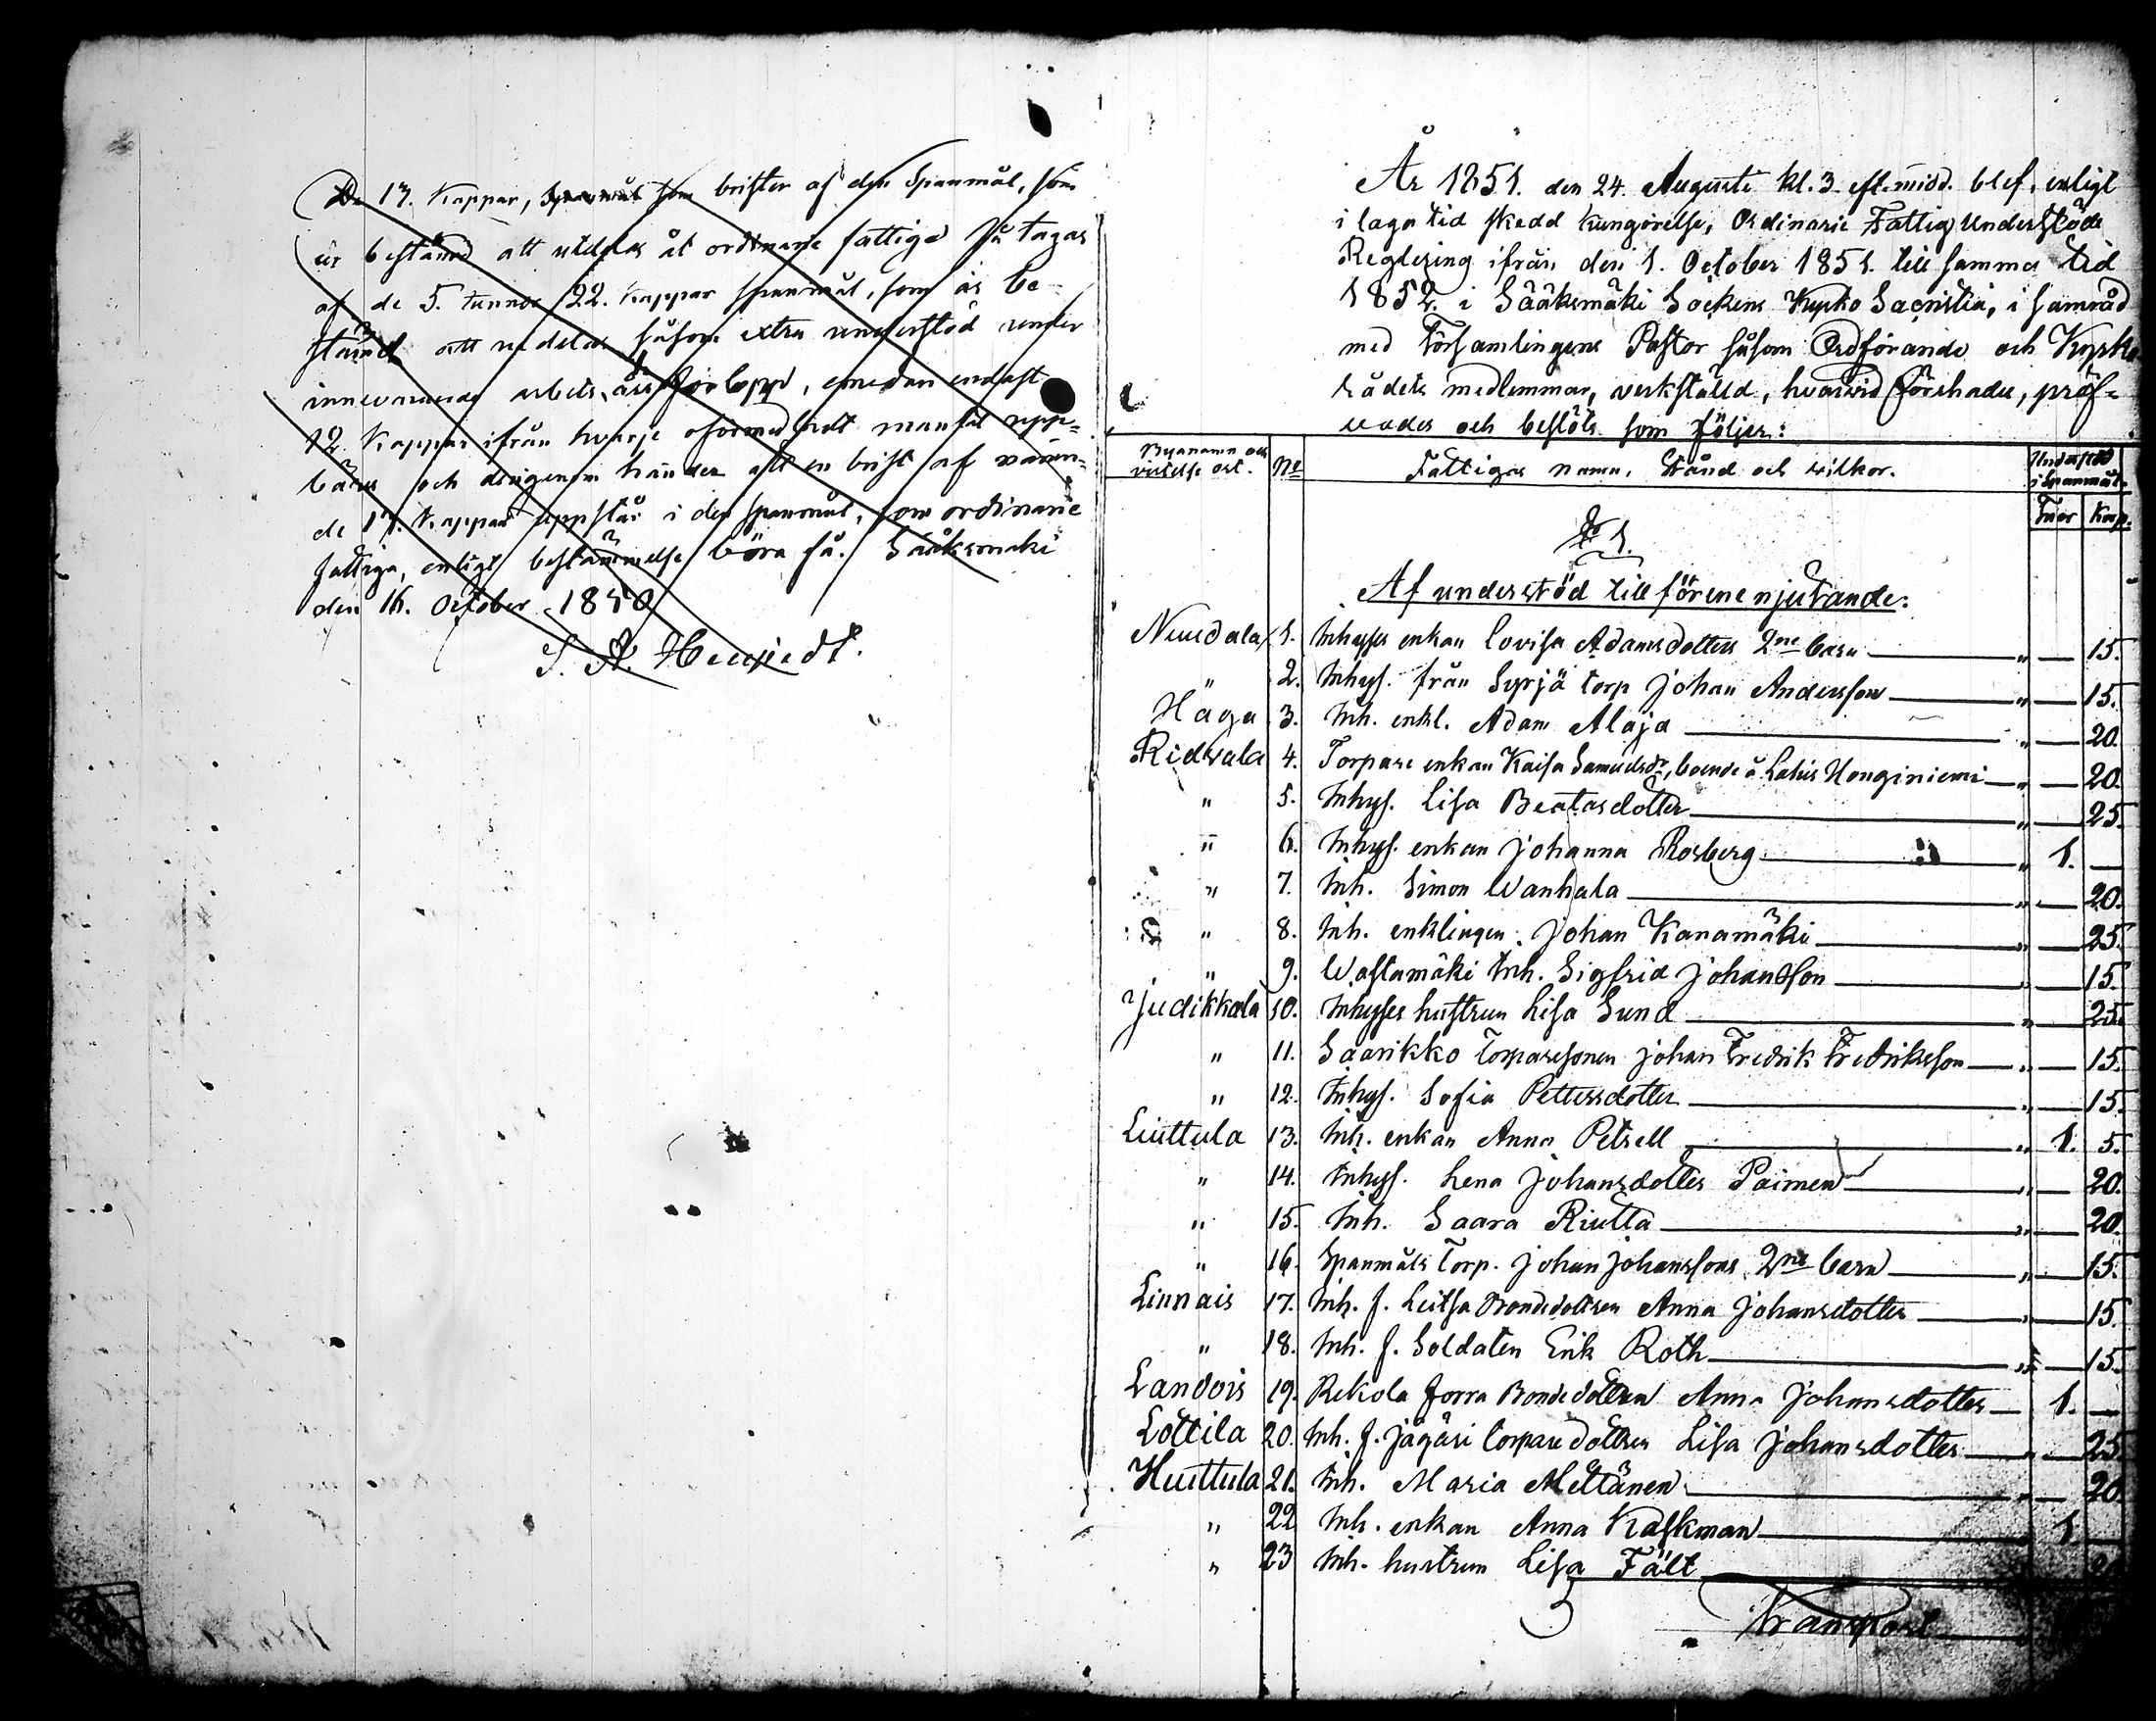 De 17. Kappar, Spanmål som brister af den Spanmål, som
är bestämd att utdelas åt ordinarie fattiga få tagas
af de 5. tunnor 22. Kappar spanmål, som är be-
stämd att utdelas såsom extra understöd under
innevarande arbets års förlopp, emedan endast
12 Kappar ifrån hvarje oförmedladt mantal uppe-
bäres och derigenom händer att en brist af näm-
de 17. Kappar uppstår i den spanmål, som ordinarie
fattiga, enligt bestämmelse böra få. Sääksmäki
den 16. October 1850
År 1851. den 24. Augusti kl. 3. eft.midd. blef, enligt
i laga tid skedd kungörelse, Ordinarie Fattig Understöds
Reglering ifrån den 1. October 1851. till samma tid
1852. i Sääksmäki Sockens Kyrko Sacristia, i samråd
med Församlingens Pastor såsom Ordförande och Kyrko
rådets medlemmar, verkställd, hvarvid förehades, pröf-
vades och beslöts som följer:
Byanamn och vistelse ort. No Fattigas namn, Stånd och vilkor. Understöd i Spanmål.
Tnor Kapp.
§ 1.
Af understöd till förene njutande:
Nuudala 1. Inhyses enkan Lovisa Adamsdotters 2ne barn " — 15.
" 2. Inhys. från Syrjä torp Johan Andersson " — 15.
Häga 3. Inh. enkl. Adam Alaja " — 20.
Ridvala 4. Torpare enkan Kaisa Samuelsdr, boende å Lahis Honginiemi " — 20.
" 5. Inhys. Lisa Beatasdotter " — 25.
" 6. Inhys. enkan Johanna Rosberg " 1. —
" 7. Inh. Simon Wanhala " — 20.
" 8. Inh. enklingen Johan Kanamäki " — 25.
" 9. Wastamäki Inh. Sigfrid Johansson " — 15.
Judikkala 10. Inhyses hustrun Lisa Sund " — 25.
" 11. Saarikko Torparesonen Johan Fredrik Fredriksson " — 15.
" 12. Inhys. Sofia Pettersdotter " — 15.
Liuttula 13. Inh. enkan Anna Petrell " 1. 5.
" 14. Inhys. Lena Johansdotter Paimen " — 20.
" 15. Inh. Saara Riutta " — 20.
" 16. Spanmåls Torp. Johan Johanssons 2ne barn " — 15.
Linnais 17. Inh. f. Leitsa Bondedottren Anna Johansdotter " — 15.
" 18. Inh. f. Soldaten Erik Roth " — 15.
Landois 19. Rekola forra Bondedottren Anna Johansdotter — 1. —
Lottila 20. Inh. f. Jägäri torpare dottren Lisa Johansdotter " — 25
Huittula 21. Inh. Maria Mettänen " — 20
" 22 Inh. enkan Anna Kaskman 1.
" 23 Inh. hustrun Lisa Fält
Transport